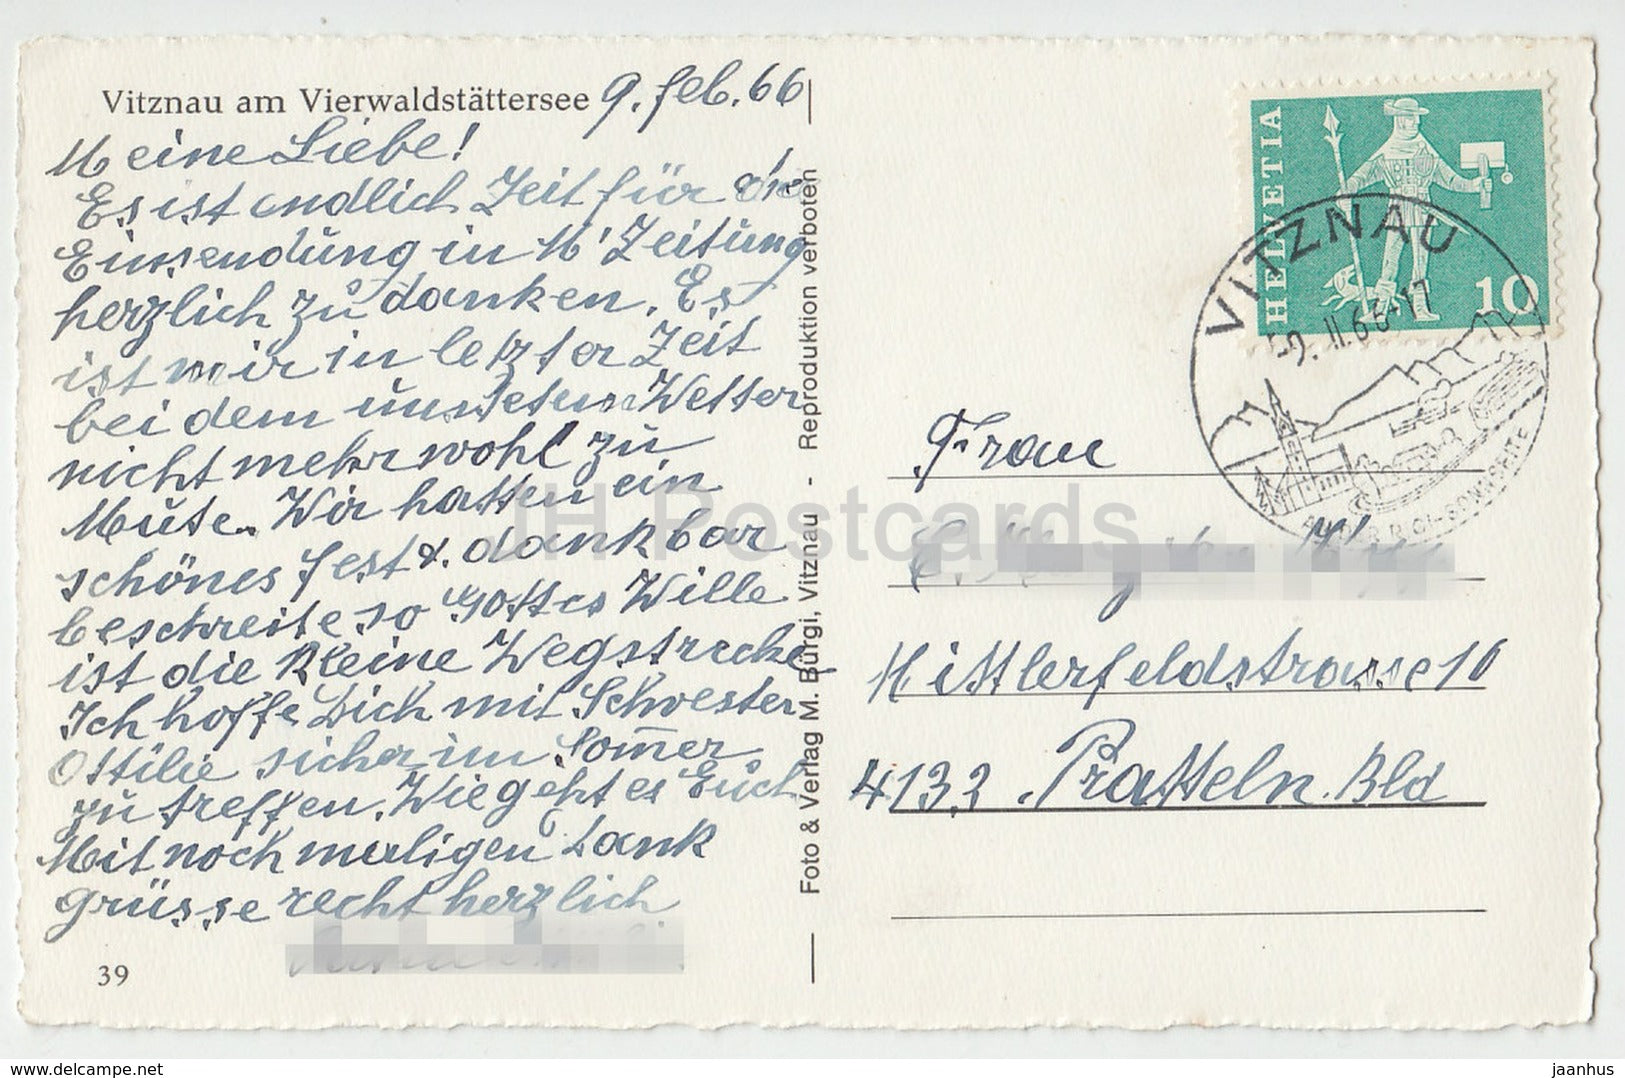 Vitznau am Vierwaldstättersee 9. Feb. 66
Meine Liebe!
Es ist endlich Zeit für die
Einsendung in M' Zeitung
herzlich zu danken. Es
ist mir in letzter Zeit
bei dem unsteten Wetter
nicht mehr wohl zu
Mute. Wir hatten ein
schönes Fest & dankbar
beschreite so Gottes Wille
ist die kleine Wegstrecke
Ich hoffe Dich mit Schwester
Ottilie sicher im Som̅er
zu treffen. Wie geht es Euch
Mit noch maligen Dank
grüsse recht herzlich
39
Foto & Verlag M. Bürgi, Vitznau - Reproduktion verboten
HELVETIA
10
VITZNAU
-9. II. 66-17
SONNSEITE
Frau
Hittlerfeldstrasse 10
4133 Pratteln Bld
JH Postcards
delcampe.net
jaanhus